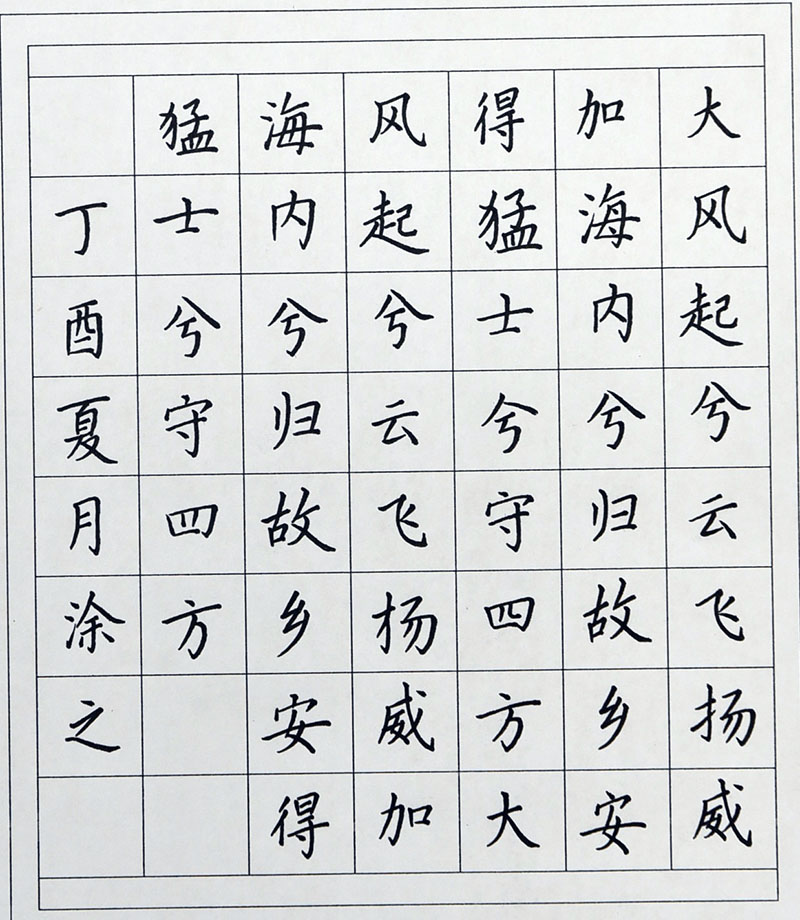 大风起兮云飞扬威
加海内兮归故乡安
得猛士兮守四方大
风起兮云飞扬威加
海内兮归故乡安得
猛士兮守四方
丁酉夏月涂之